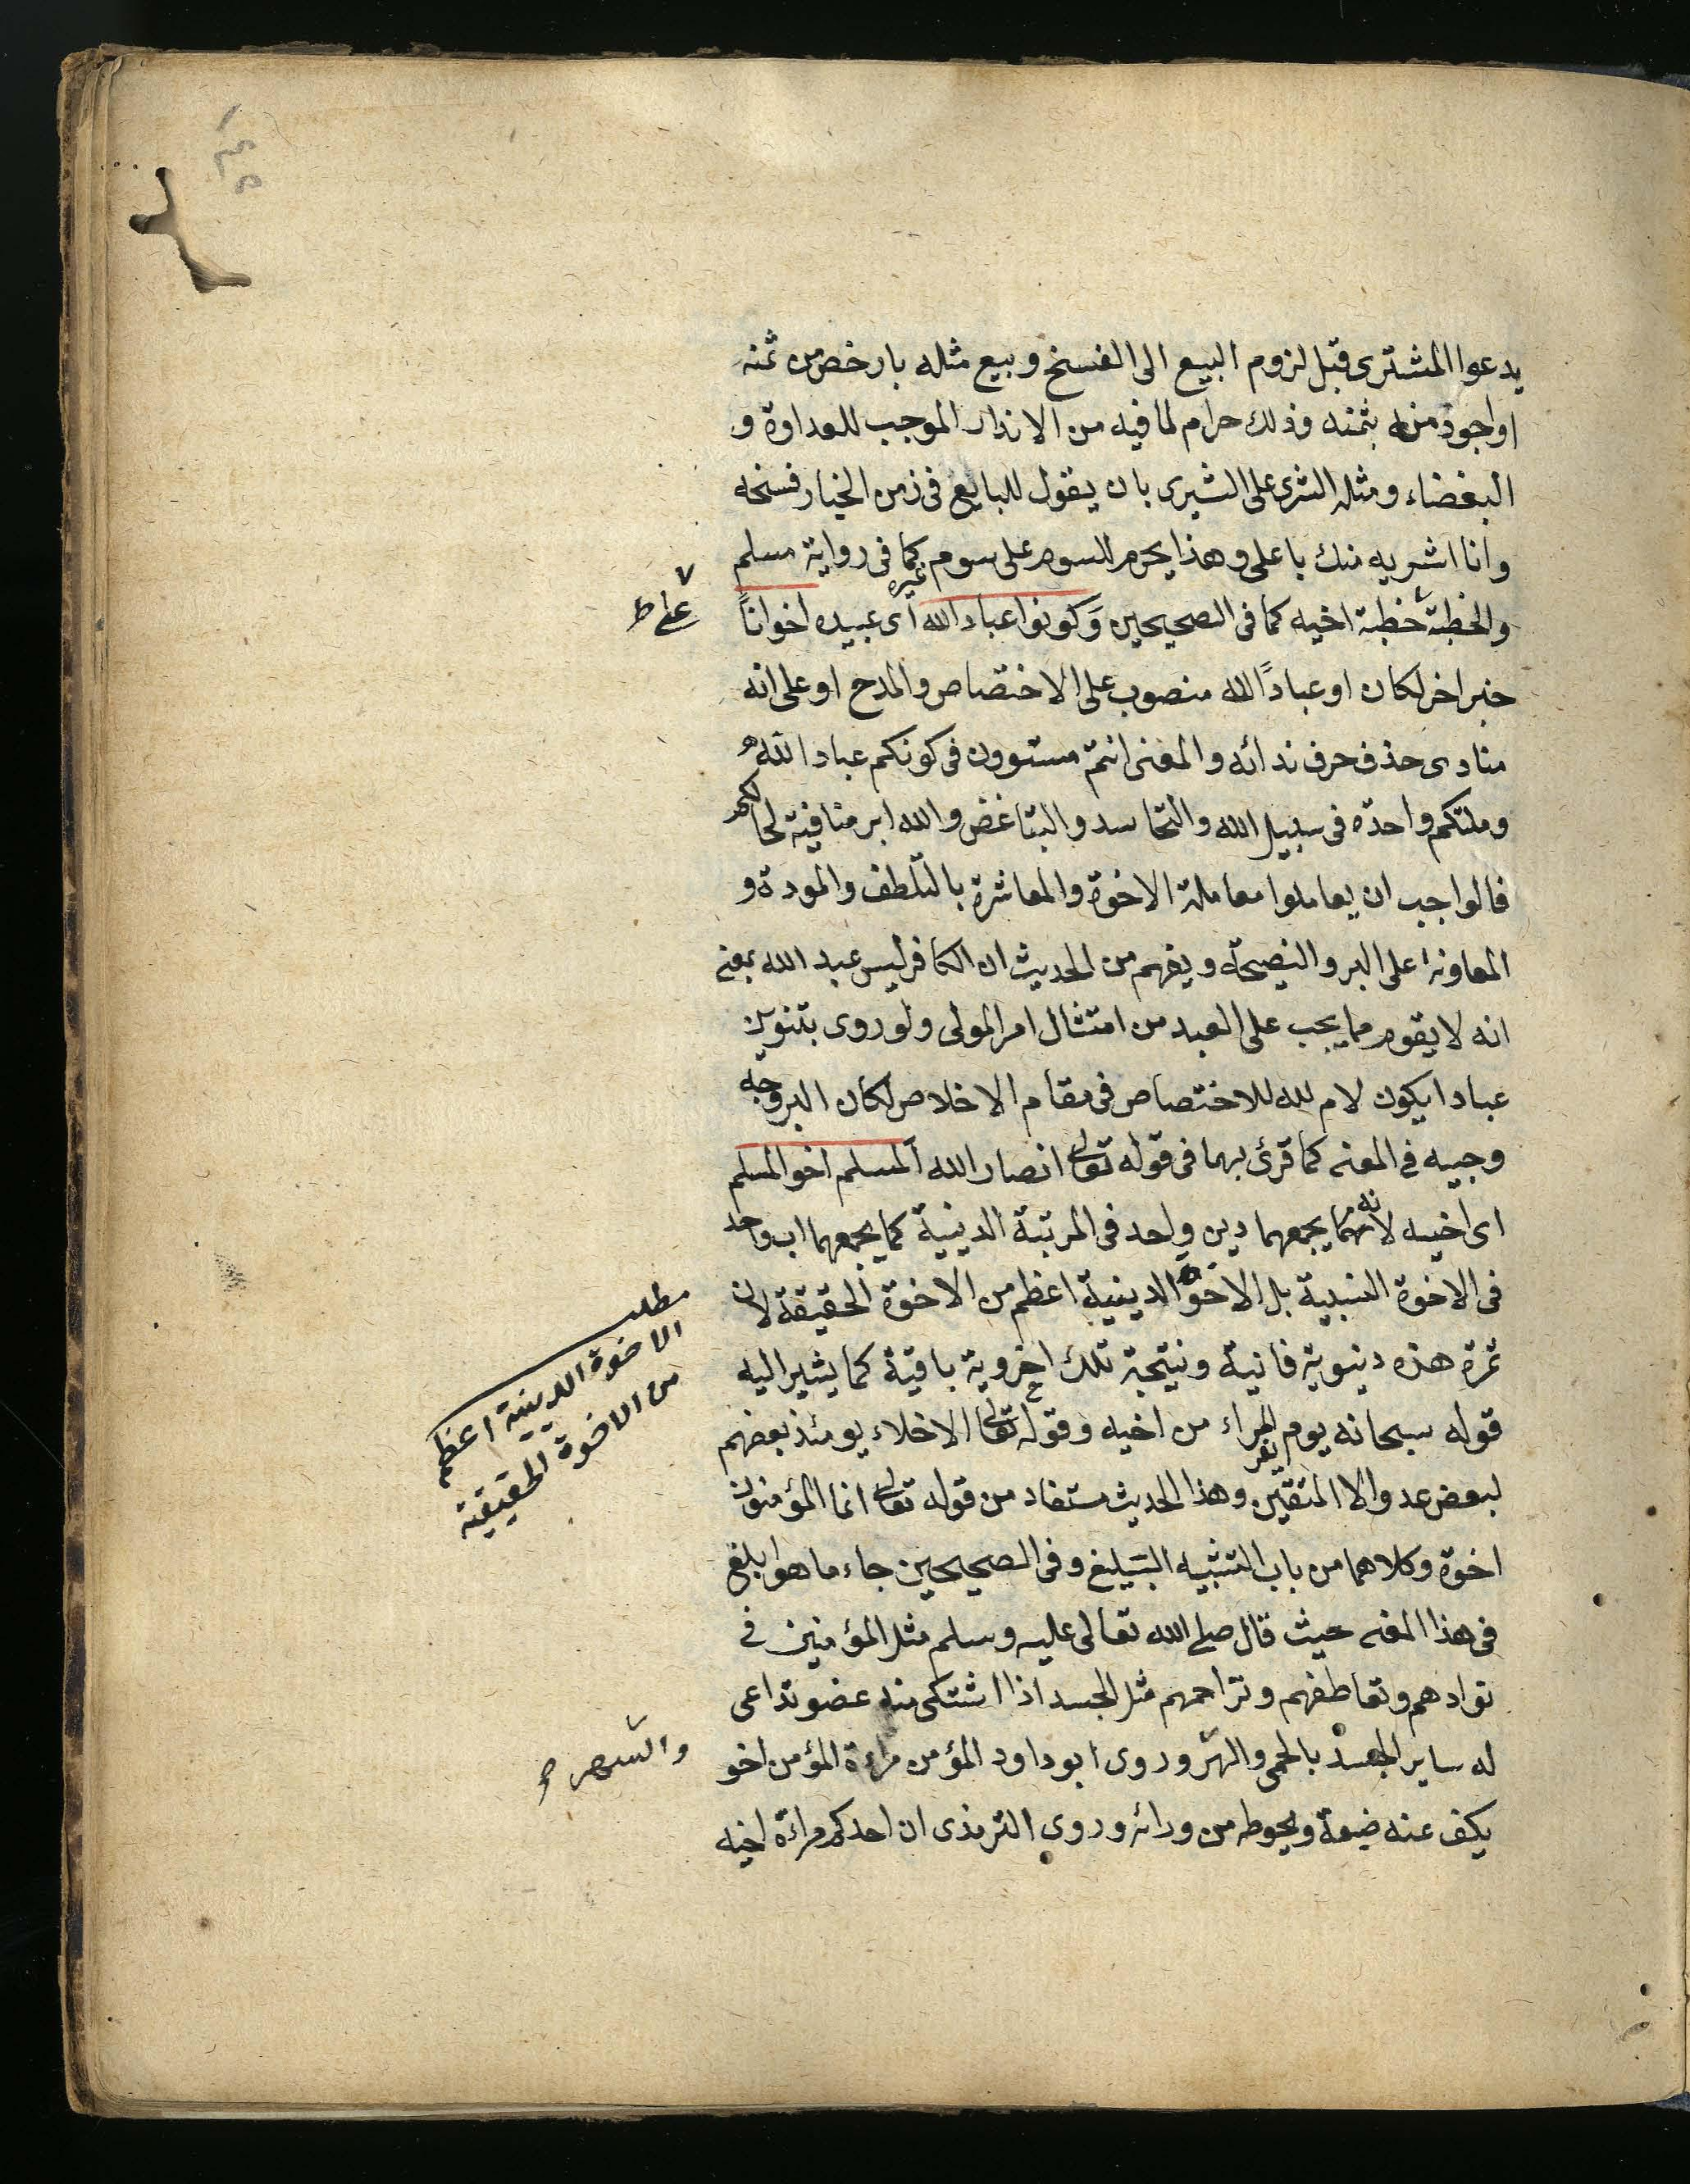 يدعوا المشترى قبل لزوم البيع الى الفسخ و بيع مثله بارخص من ثمنه
او اجود منه بثمنه وذلك حرام لما فيه من الانذار الموجب للعداوة و
البغضاء ومثله الشرى على الشرى بان يقول للبايع فى زمن الخيار فسخه
وانا اشريه منك باعلى وهذا يحرم السوم على سوم غيره كما فى رواية مسلم
والخطبة خطبة اخيه كما فى الصحيحين وَكونوا عباد الله اى عبيده اخواناً
على ط
خبر اخر لكان او عباداً لله منصوب على الاختصاص والمدح او على انه
منادى حذف حرف ندائه والمعنى انتم مستوون فى كونكم عباد الله
وملتكم واحدة فى سبيل الله والتحاسد والتباغض والله ابر منافية لحالكم
فالواجب ان يعاملوا معاملة الاخوة والمعاشرة بالتلطف والمودة و
المعاونة على البر والنصيحة ويفهم من الحديث ان الكافر ليس عبد الله بمعنى
انه لا يقوم مما يجب على العبد من امتثال امر المولى ولو روى بتنوين
عبادا يكون لام لله للاختصاص فى مقام الاخلاص لكان البر وجه
وجيه فى المعنى كما قرئ بهما فى قوله تعالى انصار الله المسلم اخو المسلم
اى اخيه لانه يجمعهما دين واحد فى المرتبة الدينية كما يجمعهما اب واحد
فى الاخوة النسبية بل الاخوة الدينية اعظم من الاخوة الحقيقة لان
مطلب
الاخوة الدينية اعظم
من الاخوة الحقيقية
ثمرة هذه دنيوية فانية ونتيجة تلك اخروية باقية كما يشير اليه
قوله سبحانه يوم يفر المراء من اخيه وقوله تعالى الاخلاء يومئذ بعضهم
لبعض عدو الا المتقين وهذا الحديث مستفاد من قوله تعالى انما المؤمنون
اخوة وكلاهما من باب التشبيه البليغ وفى الصحيحين جاء ما هو ابلغ
فى هذا المعنى حيث قال صلى الله تعالى عليه وسلم مثل المؤمنين فى
توادهم وتعاطفهم وتراحمهم مثل الجسد اذا اشتكى منه عضو تداعى
له ساير الجسد بالحمى والهر وروى ابو داود المؤمن مراءة المؤمن اخو
والسهر
يكف عنه ضيعة ويحوطه من ورائه وروى الترمذى ان احدكم مراءة اخيه